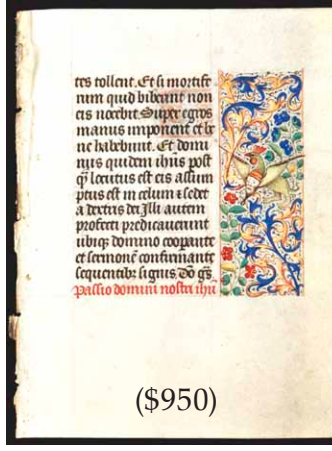 tes tollent. Et si mortife
rum quid biberint non
eis nocebit. Super egros
manus imponent et be
ne habebunt. Et domi
nus quidem ihus post
q̄ locutus est eis assum
ptus est in celum ⁊ sedet
a dextris dei Illi autem
profecti predicaverunt
ubiq; domino coopante
et sermonē confirmante
sequentibꝫ signis Dō gs̄
Passio domini nostri ihū
($950)